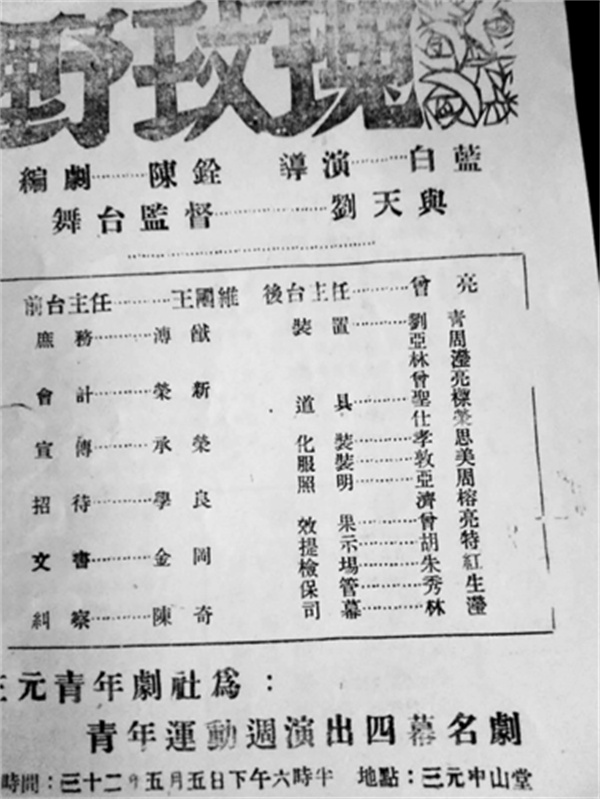 野玫瑰
編劇………陳銓 導演………白藍
舞台監督…………劉天與
前台主任………王剛維
庶務……溥猷
會計……榮新
宣傳……承榮
招待……學良
文書……金岡
糾察……陳奇
後台主任………曾亮
裝置………劉青
亞周
林瀅
曾亮
道具………聖標
仕榮
化裝………孝恩
服裝………敦美
照明………亞周
濟榕
效果………曾亮
提示………胡特
檢場………朱紅
保管………秀生
司幕………林瀅
元青年劇社為：
青年運動週演出四幕名劇
時間：三十二年五月五日下午六時半 地點：三元中山堂